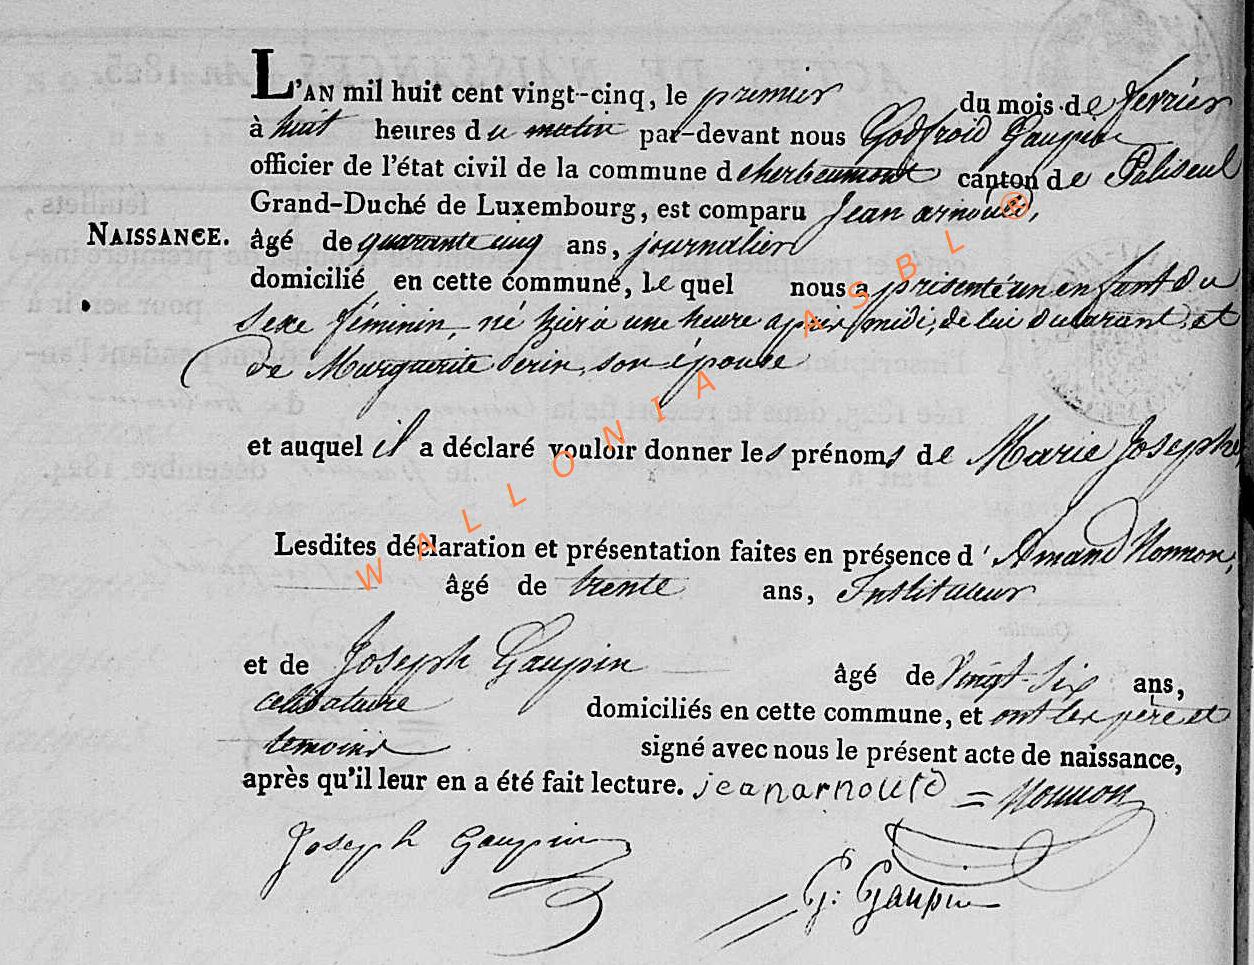 L'AN mil huit cent vingt-cinq, le premier du mois de fevrier
à huit heures du matin par-devant nous Godfroid Gaupin
officier de l'état civil de la commune d'herbeumont canton de Paliseul
Grand-Duché de Luxembourg, est comparu Jean arnould,
NAISSANCE. âgé de quarante cinq ans, journalier
domicilié en cette commune, le quel nous a présenté un enfant du
sexe féminin, né hier à une heure après midi, de lui déclarant, et
de Marguerite son épouse
et auquel il a déclaré vouloir donner les prénoms de Marie Josephe,
Lesdites déclaration et présentation faites en présence d'Amand Nonnon,
âgé de trente ans, Instituteur
et de Joseph Gaupin âgé de Vingt-Six ans,
celibataire domiciliés en cette commune, et ont les père et
temoins signé avec nous le présent acte de naissance,
après qu'il leur en a été fait lecture. jean arnould = Nonnon
Joseph Gaupin
G: Gaupin
WALLONIA ASBL ®